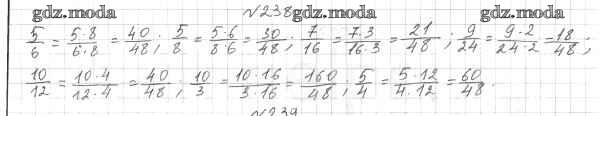 №238
gdz.moda gdz.moda gdz.moda
5/6 = 5·8/6·8 = 40/48; 5/8 = 5·6/8·6 = 30/48; 7/16 = 7·3/16·3 = 21/48; 9/24 = 9·2/24·2 = 18/48;
10/12 = 10·4/12·4 = 40/48; 10/3 = 10·16/3·16 = 160/48; 5/4 = 5·12/4·12 = 60/48.
№239